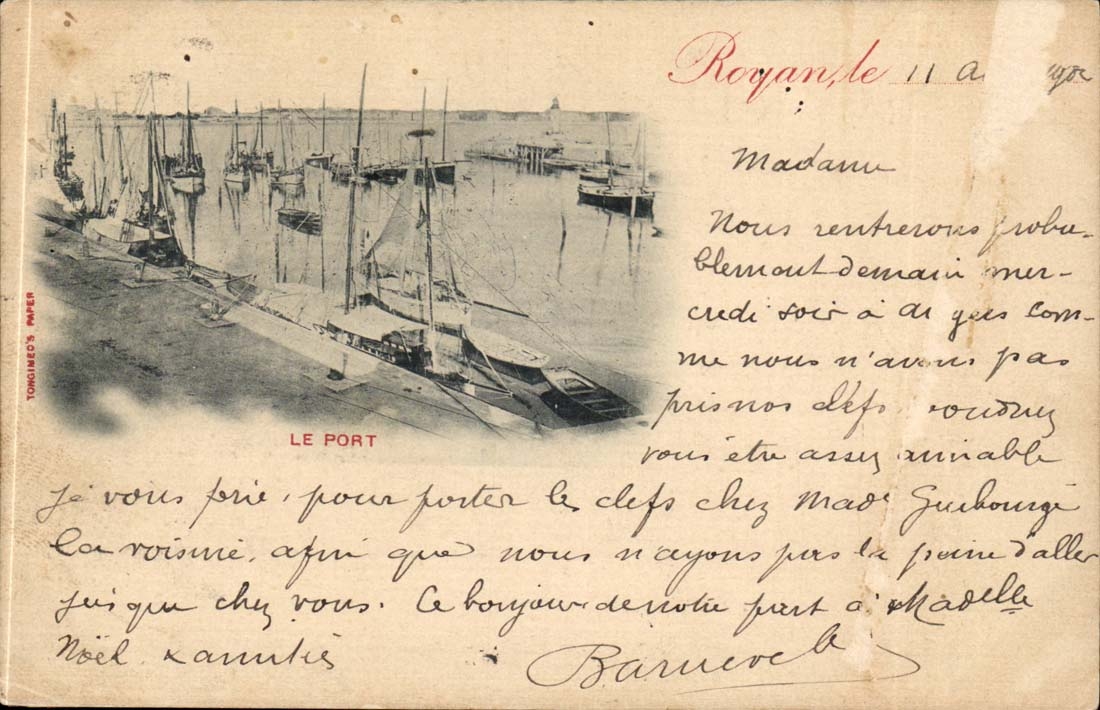 Royan, le 11
Madame
Nous rentrerons proba-
blement demain mer-
credi soir à com-
me nous n'avons pas
pris nos clefs voudriez
vous être assez aimable
je vous prie, pour porter les clefs chez Made
la voisine, afin que nous n'ayons pas la peine d'aller
jusque chez vous. Le bonjour de notre part à Madelle
Noël & amitiés
TONGIMED'S PAPER
LE PORT